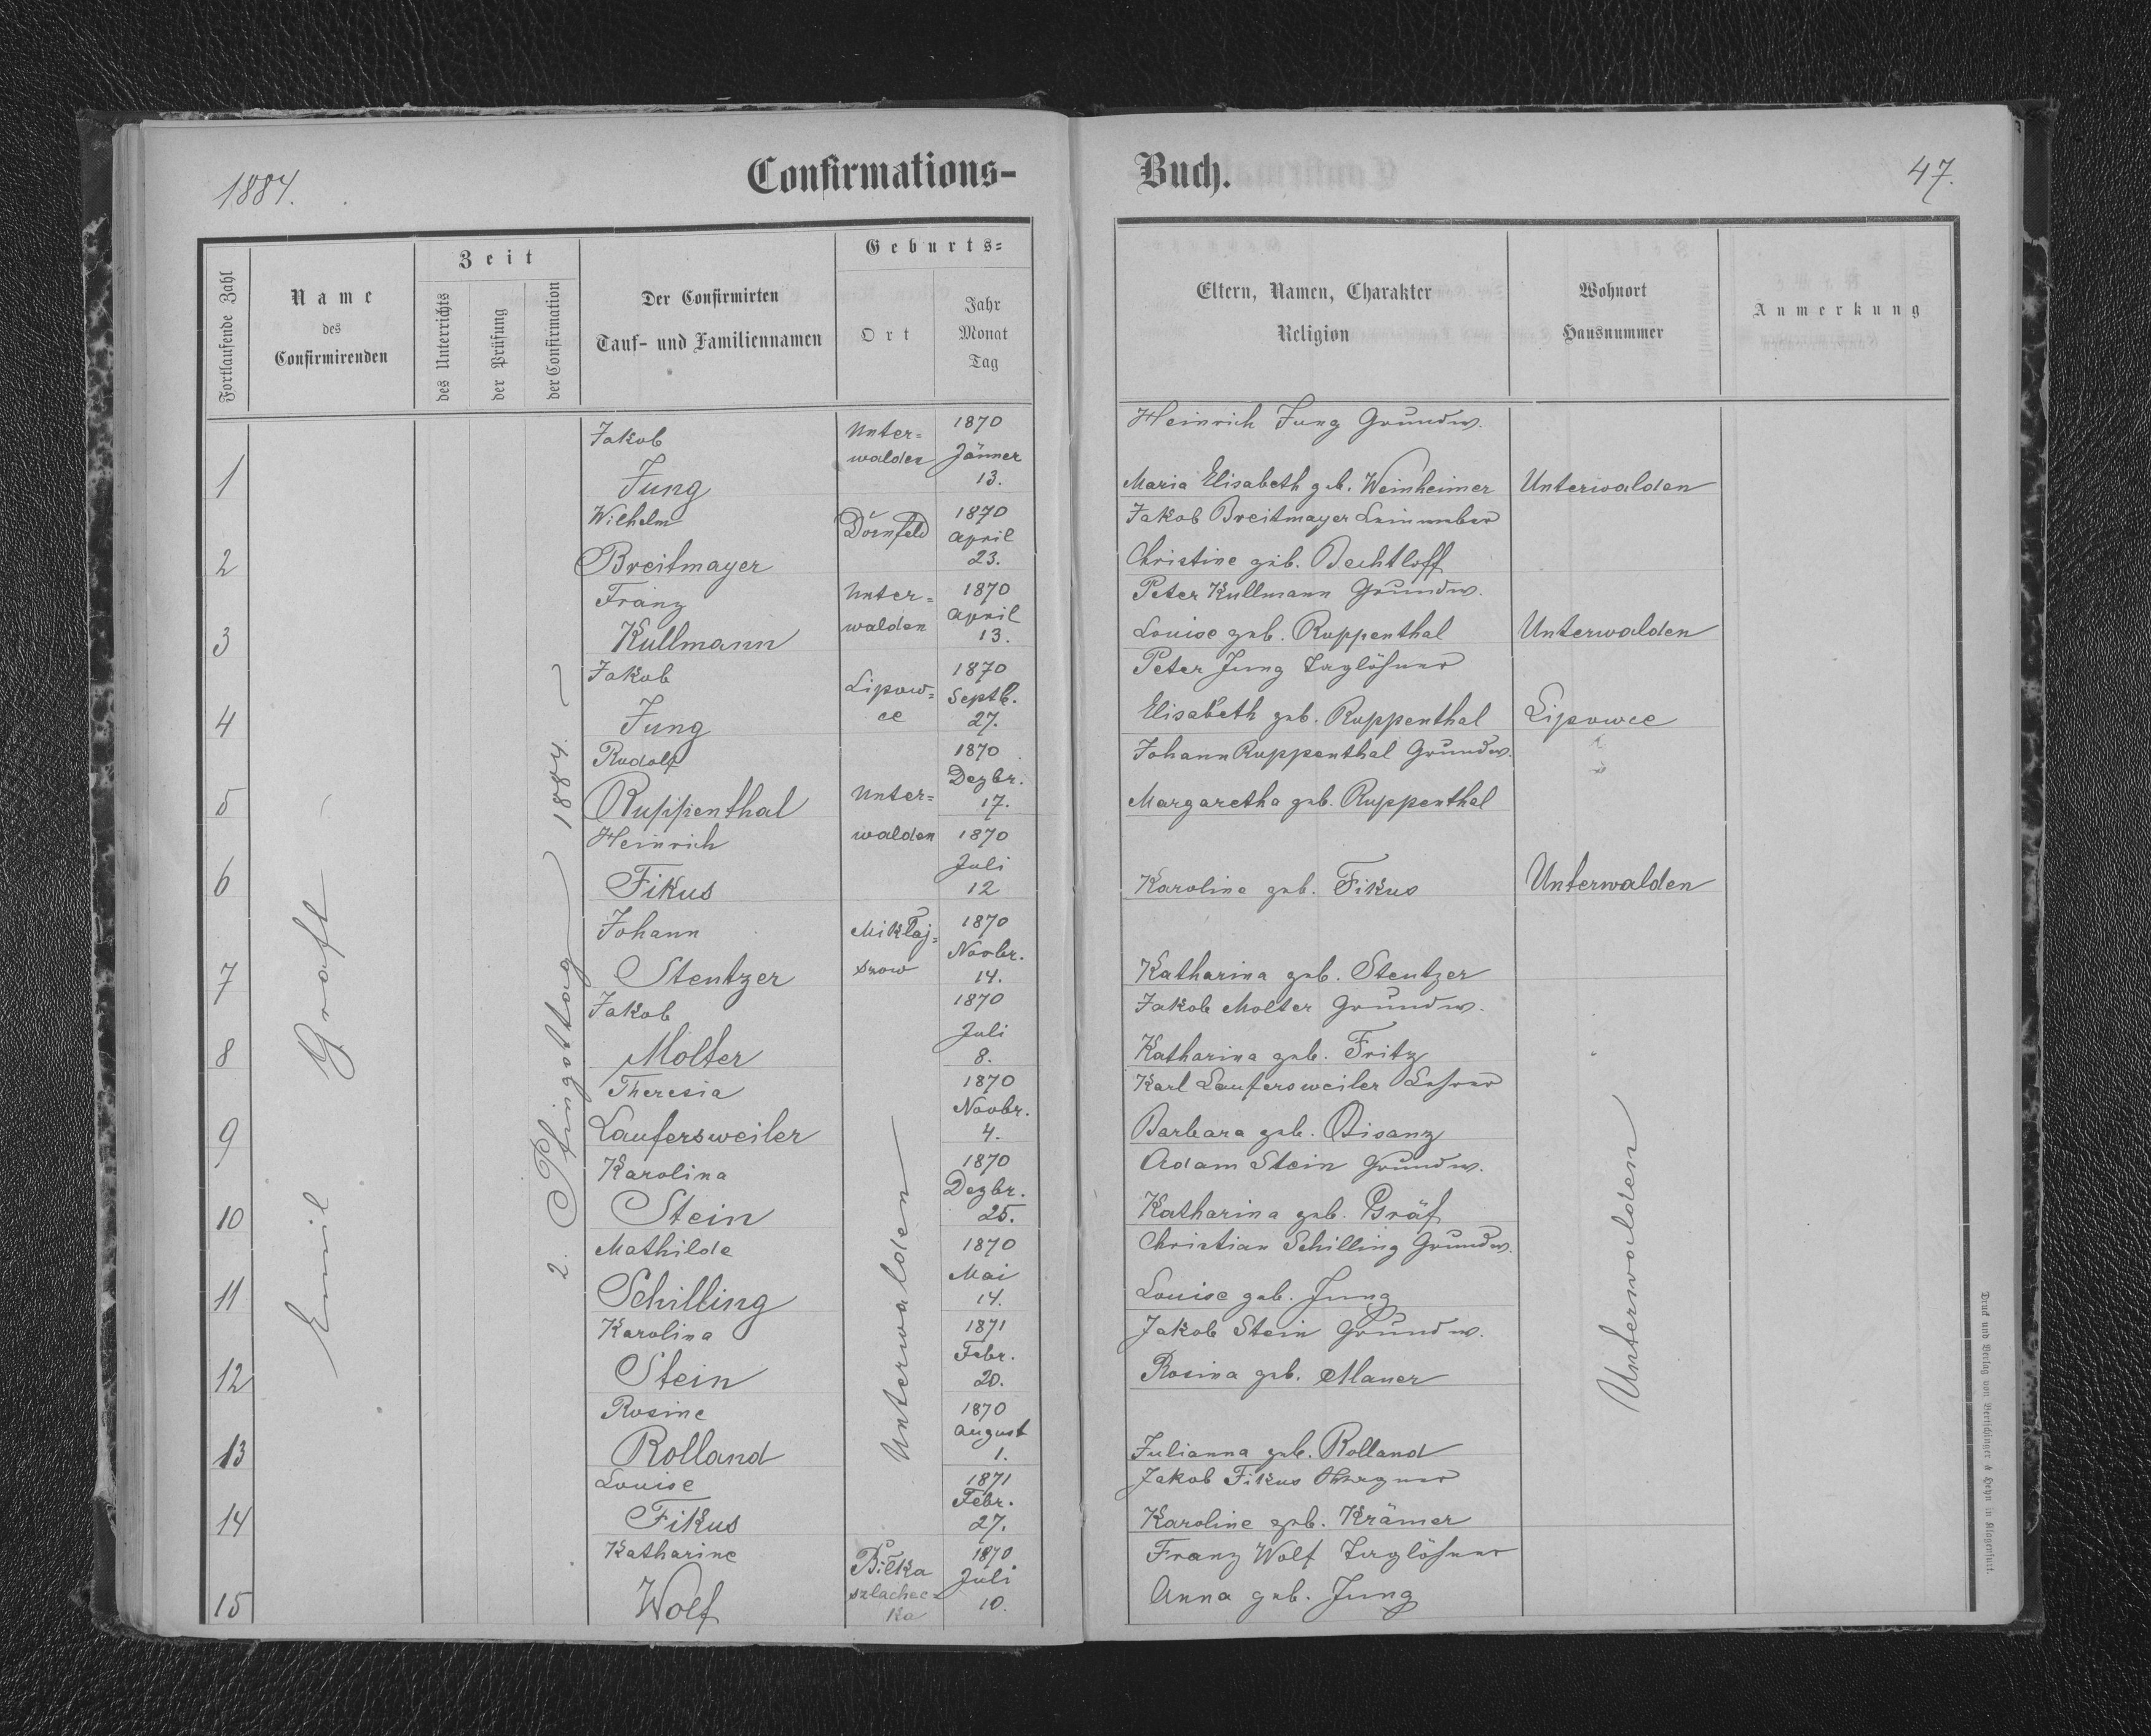 1884.
Confirmations-
Buch.
47.
Fortlaufende Zahl
Name
des
Confirmirenden
Zeit
des Unterrichts
der Prüfung
der Confirmation
Der Confirmirten
Tauf- und Familiennamen
Geburts-
Ort
Jahr
Monat
Tag
Eltern, Namen, Charakter
Religion
Wohnort
Hausnummer
Anmerkung
Emil Graft
2. Pfingsttag 1884.
1
Jakob
Jung
Unter-
walden
1870
Jänner
13.
Heinrich Jung Grundw.
Maria Elisabeth geb. Weinheimer
Unterwalden
2
Wilhelm
Breitmayer
Dornfeld
1870
April
23.
Jakob Breitmayer Leinweber
Christine geb. Bechtloff
3
Franz
Kullmann
Unter-
walden
1870
April
13.
Peter Kullmann Grundw.
Louise geb. Ruppenthal
Unterwalden
4
Jakob
Jung
Lipow-
ce
1870
Septb.
27.
Peter Jung Taglöhner
Elisabeth geb. Ruppenthal
Lipowce
5
Rudolf
Ruppenthal
Unter-
walden
1870
Dezbr.
17.
Johann Ruppenthal Grundw.
Margaretha geb. Ruppenthal
6
Heinrich
Fikus
1870
Juli
12
Karolina geb. Fikus
Unterwalden
7
Johann
Stentzer
Mikłaj-
szow
1870
Novbr.
14.
Katharina geb. Stentzer
8
Jakob
Molter
1870
Juli
8.
Jakob Molter Grundw.
Katharina geb. Fritz
9
Theresia
Laufersweiler
1870
Novbr.
4.
Karl Laufersweiler Lehrer
Barbara geb. Bisanz
10
Karolina
Stein
1870
Dezbr.
25.
Adam Stein Grundw.
Katharina geb. Gräf
11
Mathilde
Schilling
Unterwalden
1870
Mai
14.
Christian Schilling Grundw.
Louise geb. Jung
Unterwalden
12
Karolina
Stein
1871
Febr.
20.
Jakob Stein Grundw.
Rosina geb. Mauer
13
Rosine
Rolland
1870
August
1.
Julianna geb. Rolland
14
Louise
Fikus
1871
Febr.
27.
Jakob Fikus
Karoline geb. Krämer
15
Katharine
Wolf
Biłka
szlachec-
ka
1870
Juli
10.
Franz Wolf Taglöhner
Anna geb. Jung
Druck und Verlag von Bertschinger & Heyn in Klagenfurt.